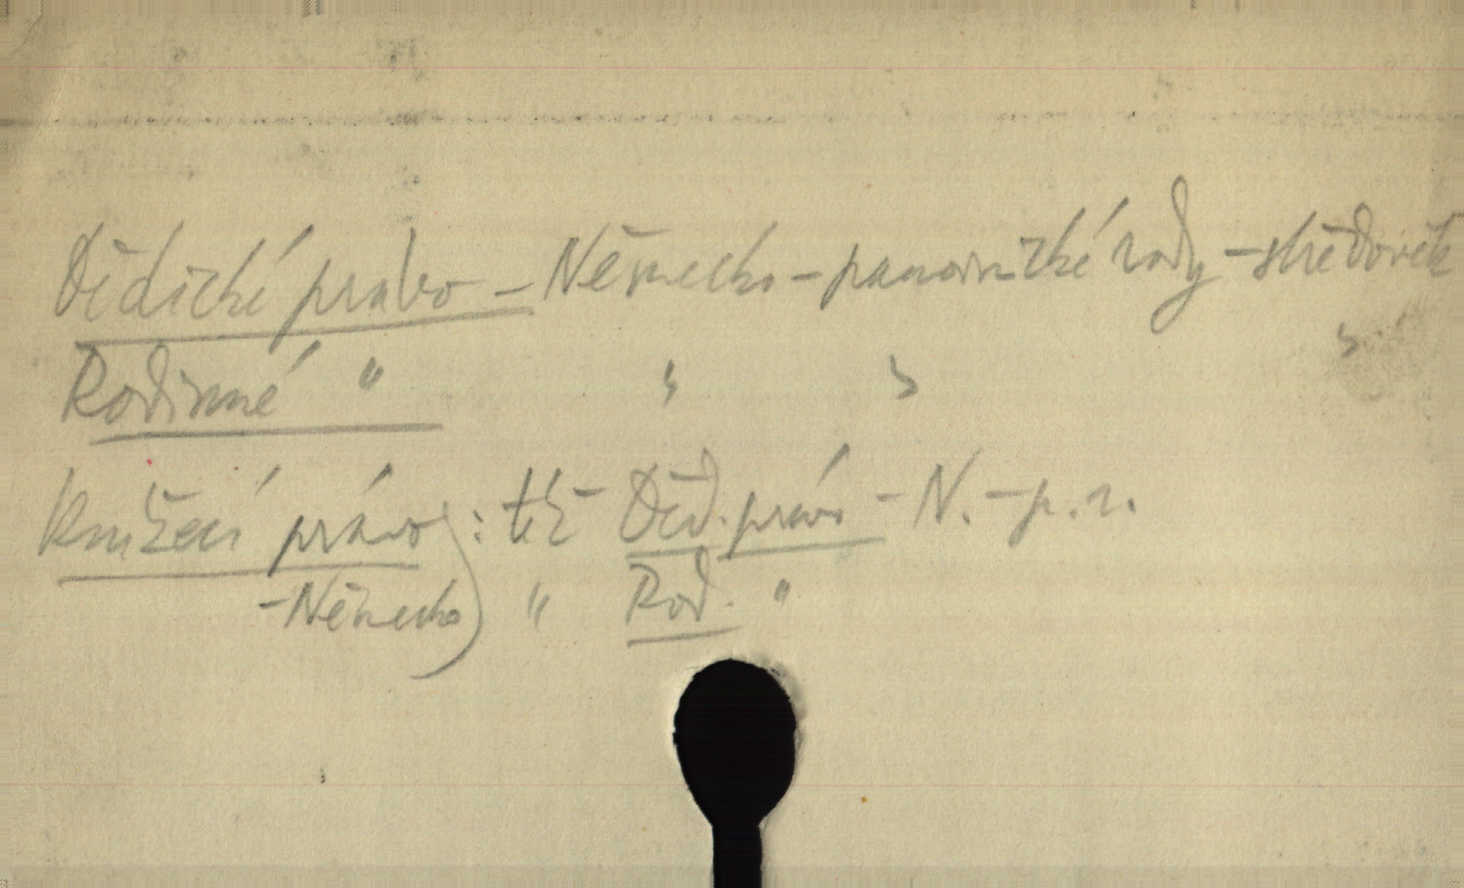 Dědické právo - Německo - panovnické rody - středověk
Rodinné " " " "
Knížecí právo : též Děd. právo - N. - p. r.
- Německo) " Rod. "